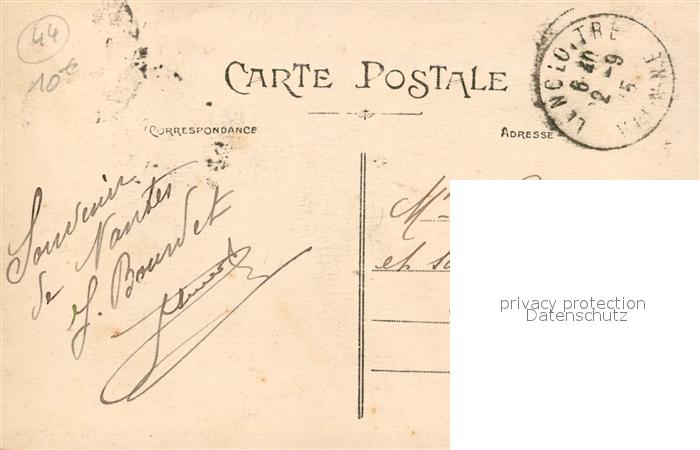 44
10€
CARTE POSTALE
CORRESPONDANCE
ADRESSE
LENCLOITRE
VIENNE
6 40
2 -9
15
Souvenir
de Nantes
J. Bourdet
M
et
privacy protection
Datenschutz